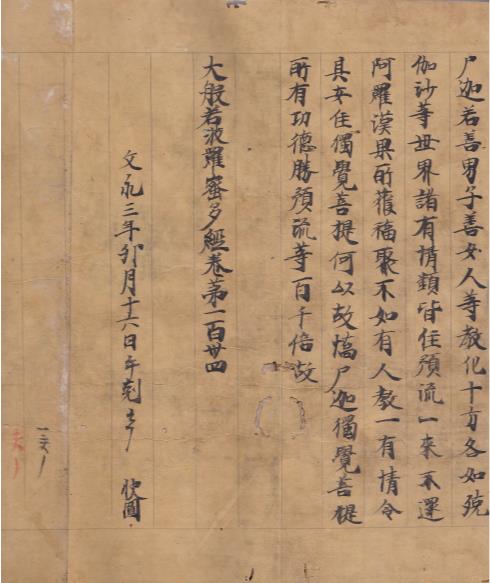 尸迦若善男子善女人等教化十方各如殑
伽沙等世界諸有情類皆住預流一來不還
阿羅漢果所獲福聚不如有人教一有情令
其安住獨覺菩提何以故憍尸迦獨覺菩提
所有功德勝預流等百千倍故
大般若波羅蜜多經卷第一百卅四
文永三年卯月十六日午剋
一交了